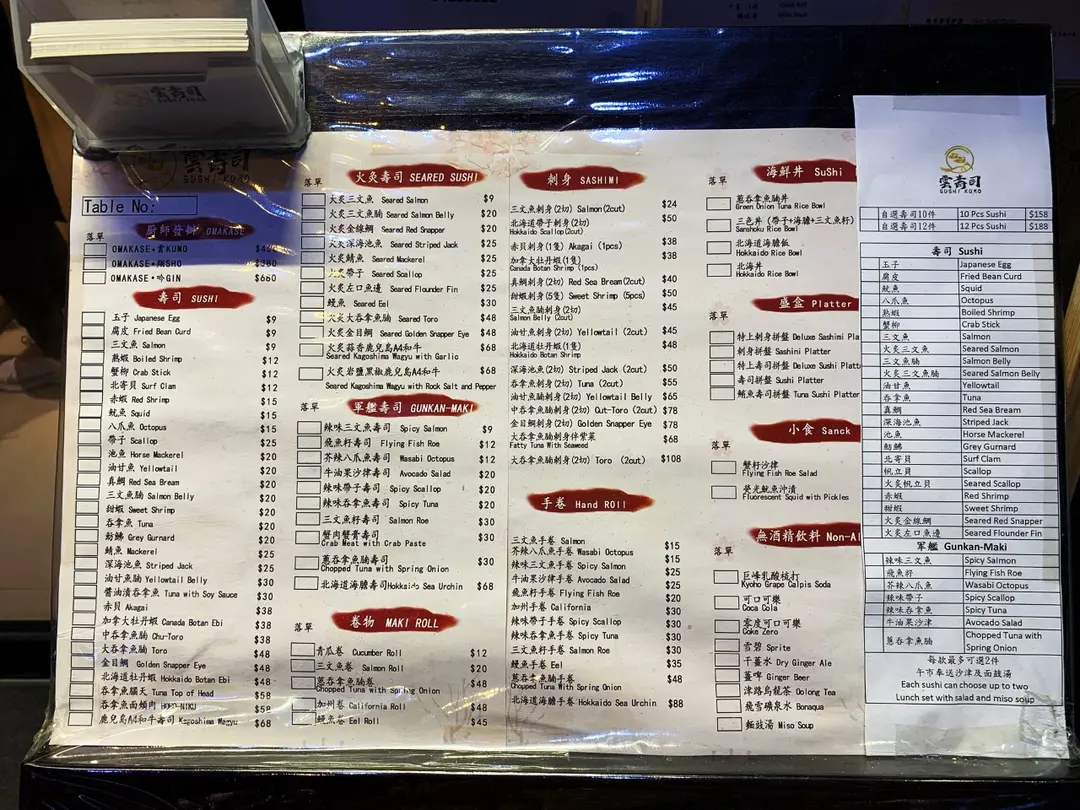 雲壽司
SUSHI KUMO
Table No:
落單
廚師發辦 OMAKASE
OMAKASE•雲KUMO
OMAKASE•吟GIN $660
壽司 SUSHI
玉子 Japanese Egg $9
腐皮 Fried Bean Curd $9
三文魚 Salmon $9
熟蝦 Boiled Shrimp $12
蟹柳 Crab Stick $12
北寄貝 Surf Clam $12
赤蝦 Red Shrimp $15
魷魚 Squid $15
八爪魚 Octopus $15
帶子 Scallop $15
池魚 Horse Mackerel $20
油甘魚 Yellowtail $20
真鯛 Red Sea Bream $20
三文魚腩 Salmon Belly $20
甜蝦 Sweet Shrimp $20
吞拿魚 Tuna $20
魴鮄 Grey Gurnard $20
鯖魚 Mackerel $25
深海池魚 Striped Jack $25
油甘魚腩 Yellowtail Belly $30
醬油漬吞拿魚 Tuna with Soy Sauce $30
赤貝 Akagai $38
加拿大牡丹蝦 Canada Botan Ebi $38
中吞拿魚腩 Chu-Toro $38
大吞拿魚腩 Toro $48
金目鯛 Golden Snapper Eye $48
北海道牡丹蝦 Hokkaido Botan Ebi $48
吞拿魚腦天 Tuna Top of Head $58
吞拿魚面頰肉 HOHO-NIKU $58
鹿兒島A4和牛壽司 Kagoshima Wagyu $68
落單
火炙壽司 SEARED SUSHI
火炙三文魚 Seared Salmon $9
火炙三文魚腩 Seared Salmon Belly $20
火炙金線鯛 Seared Red Snapper $20
火炙深海池魚 Seared Striped Jack $25
火炙鯖魚 Seared Mackerel $25
火炙帶子 Seared Scallop $25
火炙左口魚邊 Seared Flounder Fin $25
鰻魚 Seared Eel $30
火炙大吞拿魚腩 Seared Toro $48
火炙金目鯛 Seared Golden Snapper Eye $48
火炙蒜香鹿兒島A4和牛 $68
Seared Kagoshima Wagyu with Garlic
火炙岩鹽黑椒鹿兒島A4和牛 $68
Seared Kagoshima Wagyu with Rock Salt and Pepper
落單
軍艦壽司 GUNKAN-MAKI
辣味三文魚壽司 Spicy Salmon $9
飛魚籽壽司 Flying Fish Roe $12
芥辣八爪魚壽司 Wasabi Octopus $12
牛油果沙律壽司 Avocado Salad $20
辣味帶子壽司 Spicy Scallop $20
辣味吞拿魚壽司 Spicy Tuna $20
三文魚籽壽司 Salmon Roe $30
蟹肉蟹膏壽司 $30
Crab Meat with Crab Paste
蔥吞拿魚腩壽司 $30
Chopped Tuna with Spring Onion
北海道海膽壽司Hokkaido Sea Urchin $68
卷物 MAKI ROLL
落單
青瓜卷 Cucumber Roll $12
三文魚卷 Salmon Roll $20
蔥吞拿魚腩卷 $48
Chopped Tuna with Spring Onion
加州卷 California Roll $48
鰻魚卷 Eel Roll $45
刺身 SASHIMI
三文魚刺身(2切) Salmon(2cut) $24
北海道帶子刺身(2切) $50
Hokkaido Scallop(2cut)
赤貝刺身(1隻) Akagai (1pcs) $38
加拿大牡丹蝦(1隻) $38
Canada Botan Shrimp (1pcs)
真鯛刺身(2切) Red Sea Bream(2cut) $40
甜蝦刺身(5隻) Sweet Shrimp (5pcs) $50
三文魚腩刺身(2切) $45
Salmon Belly (2cut)
油甘魚刺身(2切) Yellowtail (2cut) $45
北海道牡丹蝦(1隻) $48
Hokkaido Botan Shrimp
深海池魚(2切) Striped Jack (2cut) $50
吞拿魚刺身(2切) Tuna (2cut) $55
油甘魚腩刺身(2切) Yellowtail Belly $65
中吞拿魚腩刺身(2切) Cut-Toro (2cut) $78
金目鯛刺身(2切) Golden Snapper Eye $78
大吞拿魚腩刺身伴紫菜 $68
Fatty Tuna With Seaweed
大吞拿魚腩刺身(2切) Toro (2cut) $108
手卷 Hand ROLL
三文魚手卷 Salmon $15
芥辣八爪魚手卷 Wasabi Octopus $15
辣味三文魚手卷 Spicy Salmon $25
牛油果沙律手卷 Avocado Salad $25
飛魚籽手卷 Flying Fish Roe $20
加州手卷 California $30
辣味帶子手卷 Spicy Scallop $30
辣味吞拿魚手卷 Spicy Tuna $30
三文魚籽手卷 Salmon Roe $30
鰻魚手卷 Eel $35
蔥吞拿魚腩手卷 $48
Chopped Tuna With Spring Onion
北海道海膽手卷 Hokkaido Sea Urchin $88
落單
海鮮丼 SuShi
蔥吞拿魚腩丼
Green Onion Tuna Rice Bowl
三色丼 (帶子+海膽+三文魚籽)
Sanshoku Rice Bowl
北海道海膽飯
Hokkaido Rice Bowl
北海丼
Hokkaido Rice Bowl
盛盒 Platter
落單
特上刺身拼盤 Deluxe Sashimi Pla
刺身拼盤 Sashimi Platter
特上壽司拼盤 Deluxe Sushi Platt
壽司拼盤 Sushi Platter
鮪魚壽司拼盤 Tuna Sushi Platter
小食 Sanck
落單
蟹籽沙律
Flying Fish Roe Salad
熒光魷魚沖漬
Fluorescent Squid with Pickles
無酒精飲料 Non-Al
落單
巨峰乳酸梳打
Kyoho Grape Calpis Soda
可口可樂
Coca Cola
零度可口可樂
Coke Zero
雪碧 Sprite
干薑水 Dry Ginger Ale
薑啤 Ginger Beer
津路烏龍茶 Oolong Tea
飛雪礦泉水 Bonaqua
麵豉湯 Miso Soup
雲壽司
SUSHI KUMO
自選壽司10件 10 Pcs Sushi $158
自選壽司12件 12 Pcs Sushi $188
壽司 Sushi
玉子 Japanese Egg
腐皮 Fried Bean Curd
魷魚 Squid
八爪魚 Octopus
熟蝦 Boiled Shrimp
蟹柳 Crab Stick
三文魚 Salmon
火炙三文魚 Seared Salmon
三文魚腩 Salmon Belly
火炙三文魚腩 Seared Salmon Belly
油甘魚 Yellowtail
吞拿魚 Tuna
真鯛 Red Sea Bream
深海池魚 Striped Jack
池魚 Horse Mackerel
魴鮄 Grey Gurnard
北寄貝 Surf Clam
帆立貝 Scallop
火炙帆立貝 Seared Scallop
赤蝦 Red Shrimp
甜蝦 Sweet Shrimp
火炙金線鯛 Seared Red Snapper
火炙左口魚邊 Seared Flounder Fin
軍艦 Gunkan-Maki
辣味三文魚 Spicy Salmon
飛魚籽 Flying Fish Roe
芥辣八爪魚 Wasabi Octopus
辣味帶子 Spicy Scallop
辣味吞拿魚 Spicy Tuna
牛油果沙律 Avocado Salad
蔥吞拿魚腩 Chopped Tuna with
Spring Onion
每款最多可選2件
午市奉送沙津及面豉湯
Each sushi can choose up to two
Lunch set with salad and miso soup